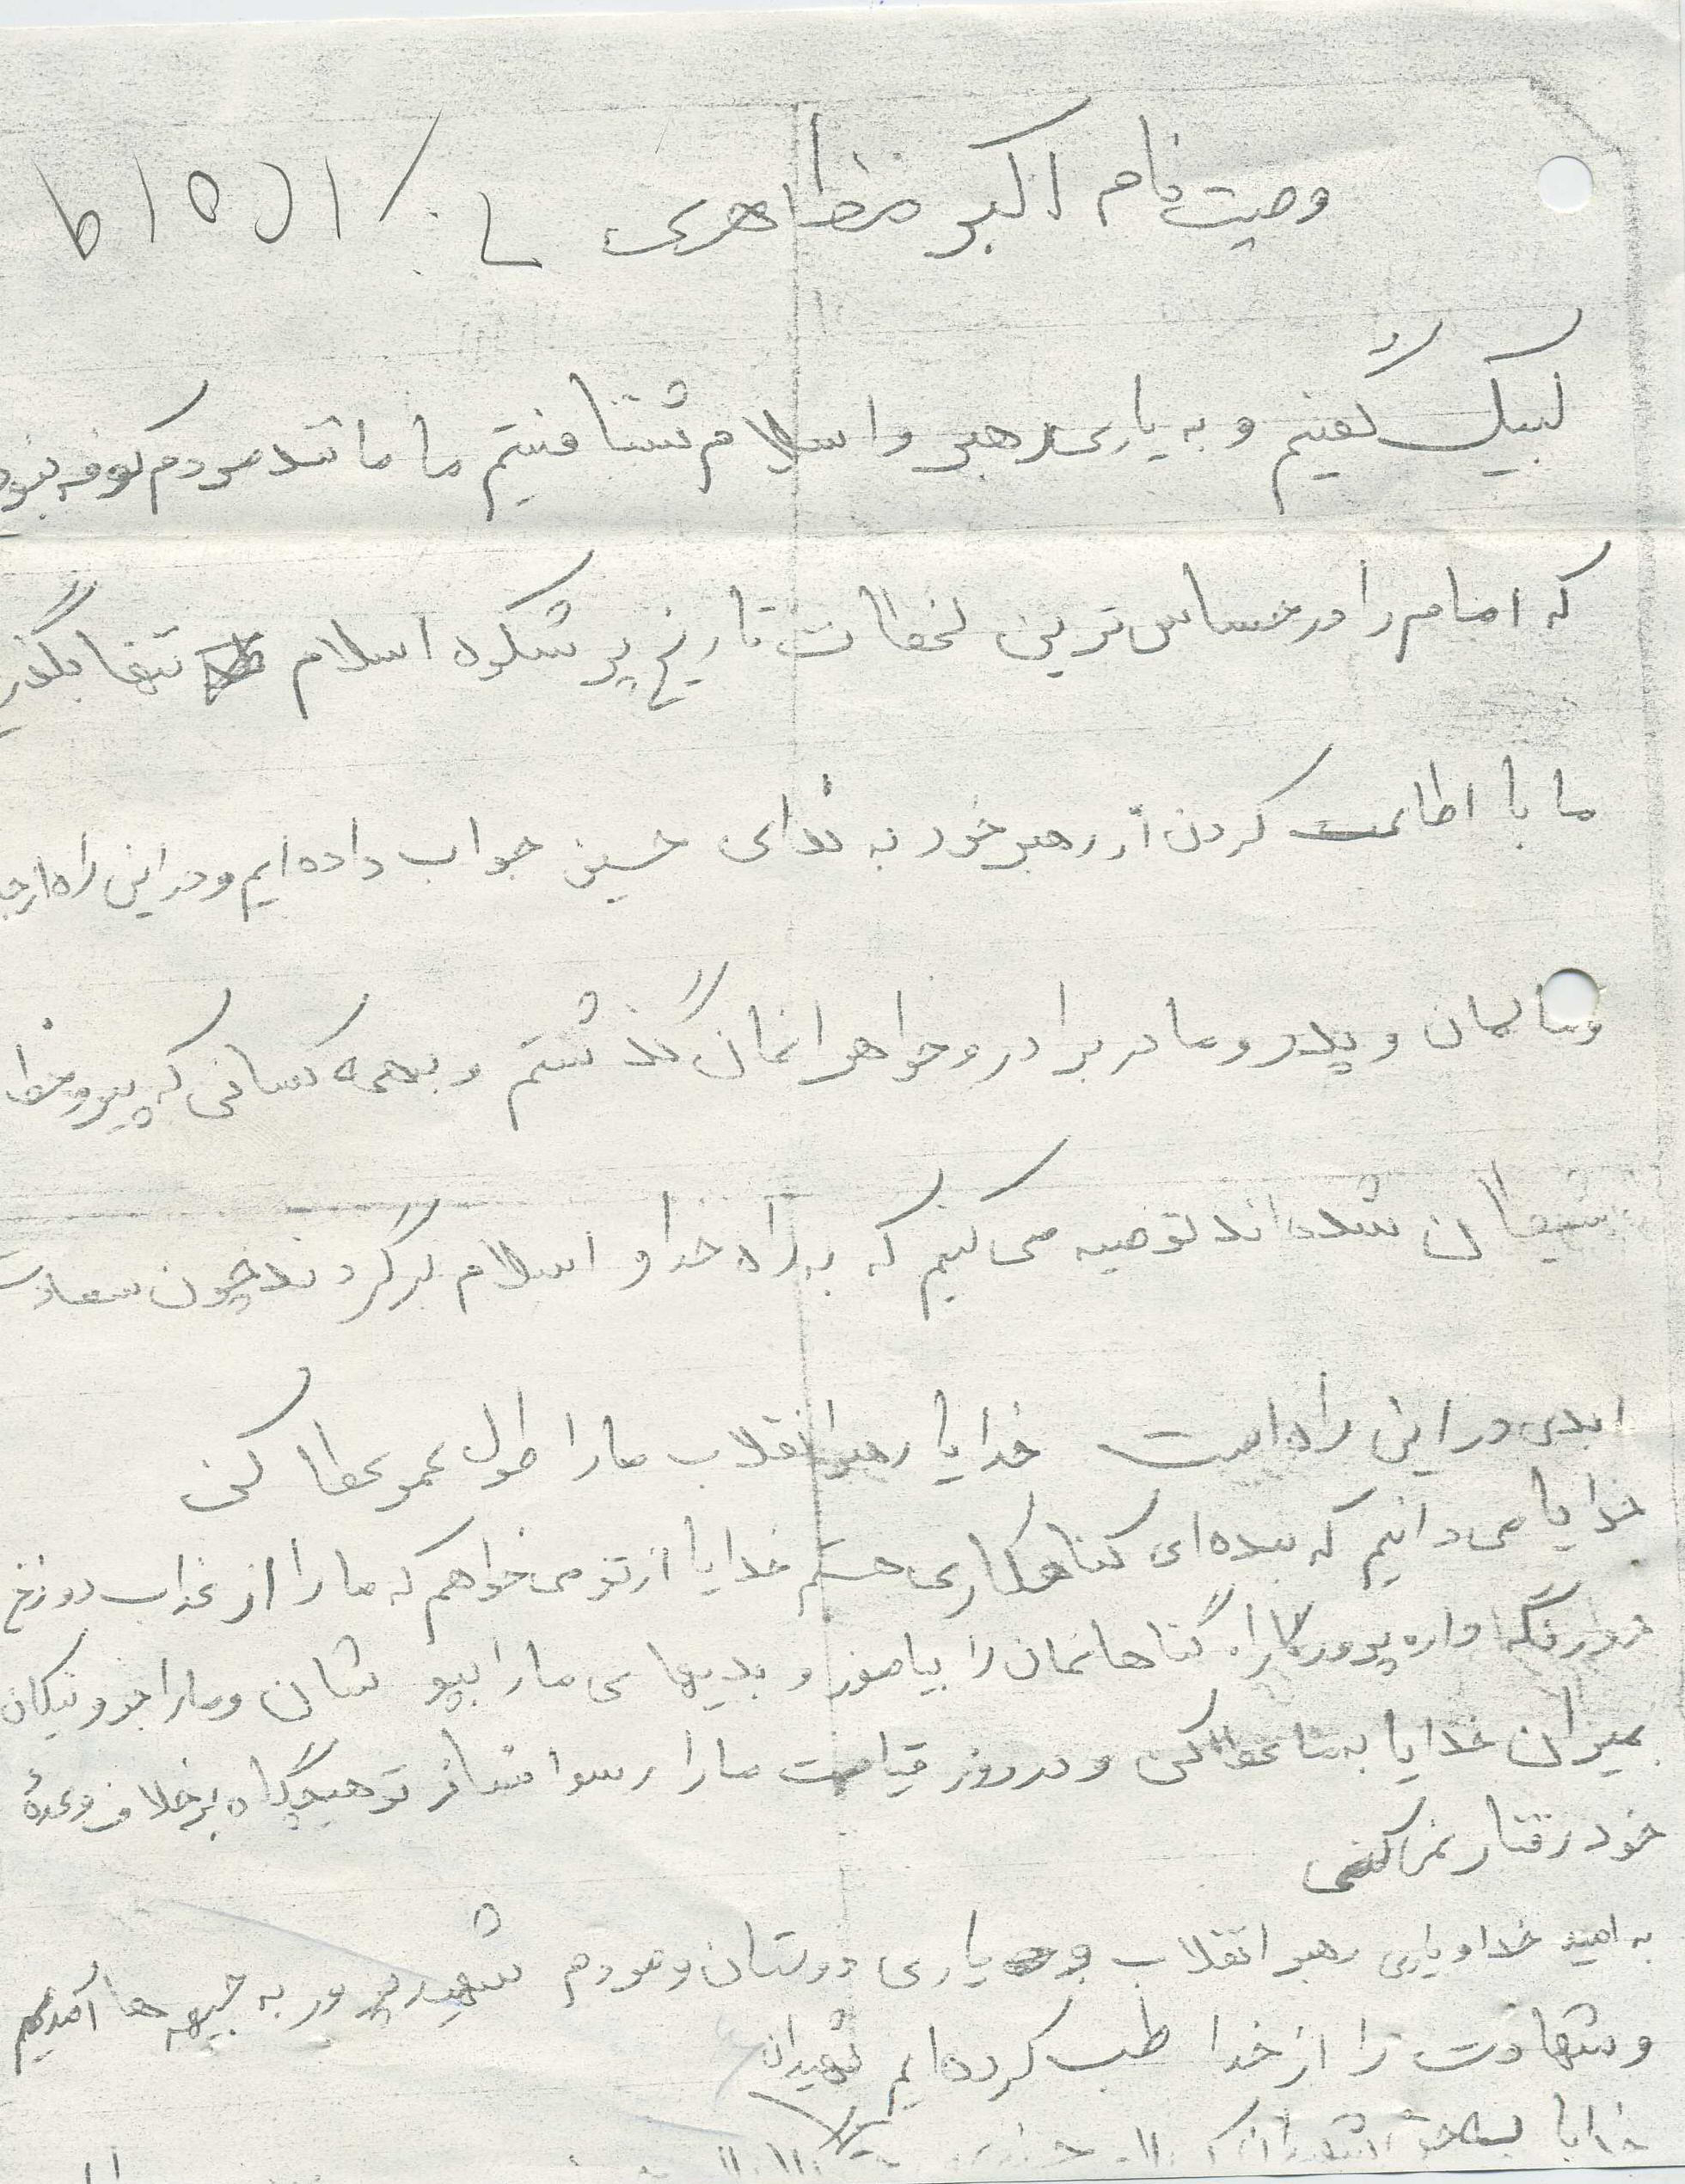 وصیت نام اکبر مظاهری
لبیک گفتیم و به یاری رهبر و اسلام شتافتیم ما مانند مردم کوفه نبود
که امام را در حساس ترین لحظات تاریخ پر شکوه اسلام تنها بگذر
ما با اطاعت کردن از رهبر خود به ندای حسین جواب داده ایم و در این راه از جا
و مالمان و پدر و مادر برادر و خواهرانمان گذشتم و بهمه کسانی که پیرو خط
شیطان شده اند توصیه می کنیم که به راه خدا و اسلام برگردند چون سعادت
ابدی در این راه است خدایا رهبر انقلاب ما را طول عمر عطا کن
خدایا می دانیم که بنده ای گناهکاری هستم خدایا از تو می خواهم که ما را از عذاب دوزخ
دور نگه داره پروردگارا گناهانمان را بیامرز و بدیهای ما را بپوشان و ما را جزو نیکان
بمیران خدایا به ما عطا کن و در روز قیامت ما را رسوا مساز تو هیچگاه برخلاف وعدهٔ
خود رفتار نمی کنی
به امید خدا و یاری رهبر انقلاب و یاری دوستان و مردم شهید پرور به جبهه ها آمدیم
و شهادت را از خدا طب کرده ایم شهیدان
خدایا